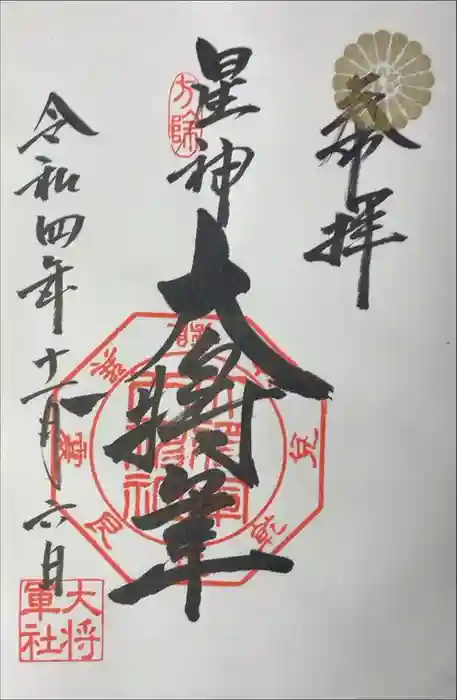 奉拝
星神
大将軍
方除
兌
乾
艮
震
令和四年十一月六日
大将軍社